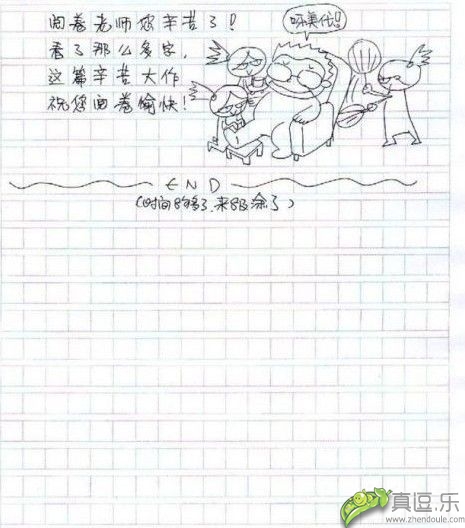 阅卷老师您辛苦了!
看了那么多字,
这篇辛苦大作
祝您阅卷愉快!
呀美代!!
END
(时间8够了.来8及涂了)
真逗.乐
www.zhendoule.com